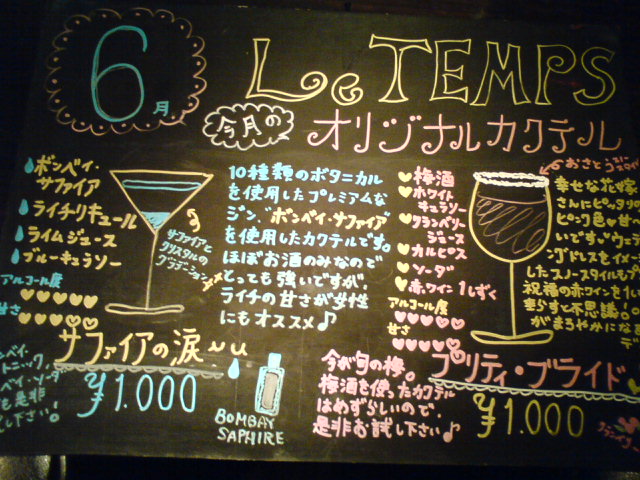 6月
Le TEMPS
今月の
オリジナルカクテル
ボンベイ・
サファイア
ライチリキュール
ライムジュース
ブルーキュラソー
アルコール度
甘さ
サファイアと
クリスタルの
グラデーション
10種類のボタニカル
を使用したプレミアムな
ジン、"ボンベイ・サファイア"
を使用したカクテルです。
ほぼお酒のみなので
とっても強いですが、
ライチの甘さが女性
にもオススメ♪
サファイアの涙
¥1.000
BOMBAY
SAPHIRE
梅酒
ホワイト
キュラソー
クランベリー
ジュース
カルピス
ソーダ
赤ワイン1しずく
アルコール度
甘さ
おさとう
幸せな花嫁
さんにピッタリの
ピンク色
祝福の赤ワインを1
がまろやかにな
プリティ・ブライド
¥1.000
今が旬の梅。
梅酒を使ったカクテル
はめずらしいので、
是非お試し下さい♪
ベイ・
トニック、
ベイ・ソーダ
も是非
下さい。